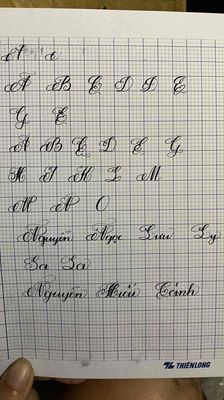 A a
A B C D D E
G E
A B C D E G
H I K L M
M N O
Nguyễn Ngọc Lưu Ly
Sa La
Nguyễn Hiếu Cảnh
THIÊN LONG